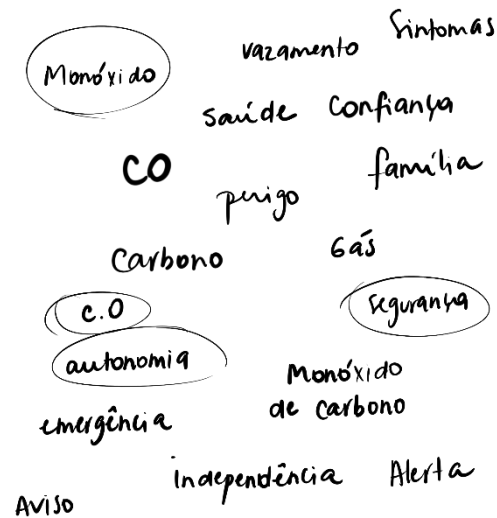 Sintomas
vazamento
Monóxido
saúde confiança
CO
família
perigo
Carbono
Gás
C.O
segurança
autonomia
Monóxido
de carbono
emergência
independência Alerta
AVISO